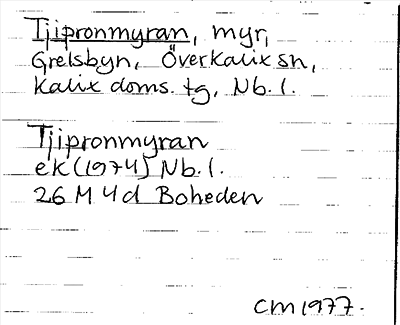 Tjipronmyran, myr,
Grelsbyn, Överkalix sn,
Kalix doms. tg, Nb. l.
Tjipronmyran
ek (1974) Nb. l.
26 M 4d Boheden
CM 1977.